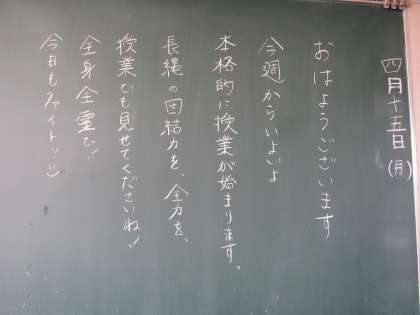 四月十五日(月)
おはようございます
今週からいよいよ
本格的に授業が始まります。
長縄の団結力を、全力を、
授業でも見せてくださいね!
全身全霊で!
今日もファイト!:)